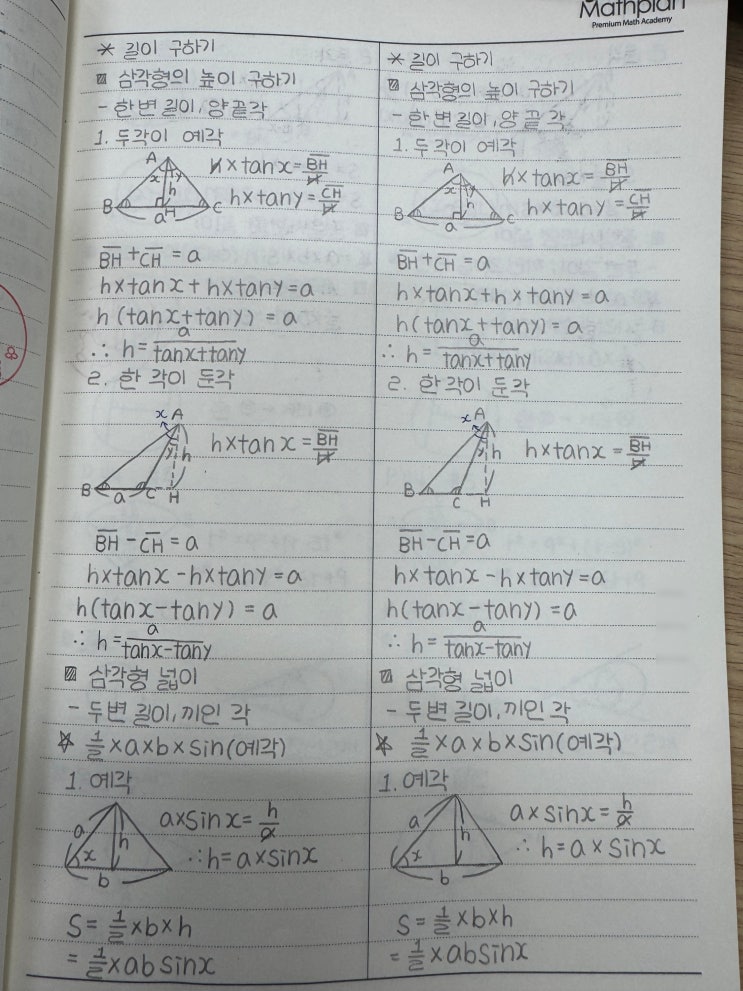 Mathplan
Premium Math Academy
* 길이 구하기
▨ 삼각형의 높이 구하기
- 한 변 길이, 양 끝각
1. 두각이 예각
A
x y
h
B H C
a
h × tanx = B̅H̅/h
h × tany = C̅H̅/h
B̅H̅ + C̅H̅ = a
h × tanx + h × tany = a
h (tanx + tany) = a
∴ h = a/(tanx+tany)
2. 한 각이 둔각
x A
y h
B a C H
h × tanx = B̅H̅/h
B̅H̅ - C̅H̅ = a
h × tanx - h × tany = a
h(tanx - tany) = a
∴ h = a/(tanx-tany)
▨ 삼각형 넓이
- 두 변 길이, 끼인 각
☆ 1/2 × a × b × sin(예각)
1. 예각
a
h
x
b
a × sinx = h/a
∴ h = a × sinx
S = 1/2 × b × h
= 1/2 × ab sinx
* 길이 구하기
▨ 삼각형의 높이 구하기
- 한 변 길이, 양 끝 각
1. 두각이 예각
A
x y
h
B C
a
h × tanx = B̅H̅/h
h × tany = C̅H̅/h
B̅H̅ + C̅H̅ = a
h × tanx + h × tany = a
h(tanx + tany) = a
∴ h = a/(tanx+tany)
2. 한 각이 둔각
x A
y h
B C H
h × tanx = B̅H̅/h
B̅H̅ - C̅H̅ = a
h × tanx - h × tany = a
h(tanx - tany) = a
∴ h = a/(tanx-tany)
▨ 삼각형 넓이
- 두 변 길이, 끼인 각
☆ 1/2 × a × b × sin(예각)
1. 예각
a
h
x
b
a × sinx = h/a
∴ h = a × sinx
S = 1/2 × b × h
= 1/2 × absinx